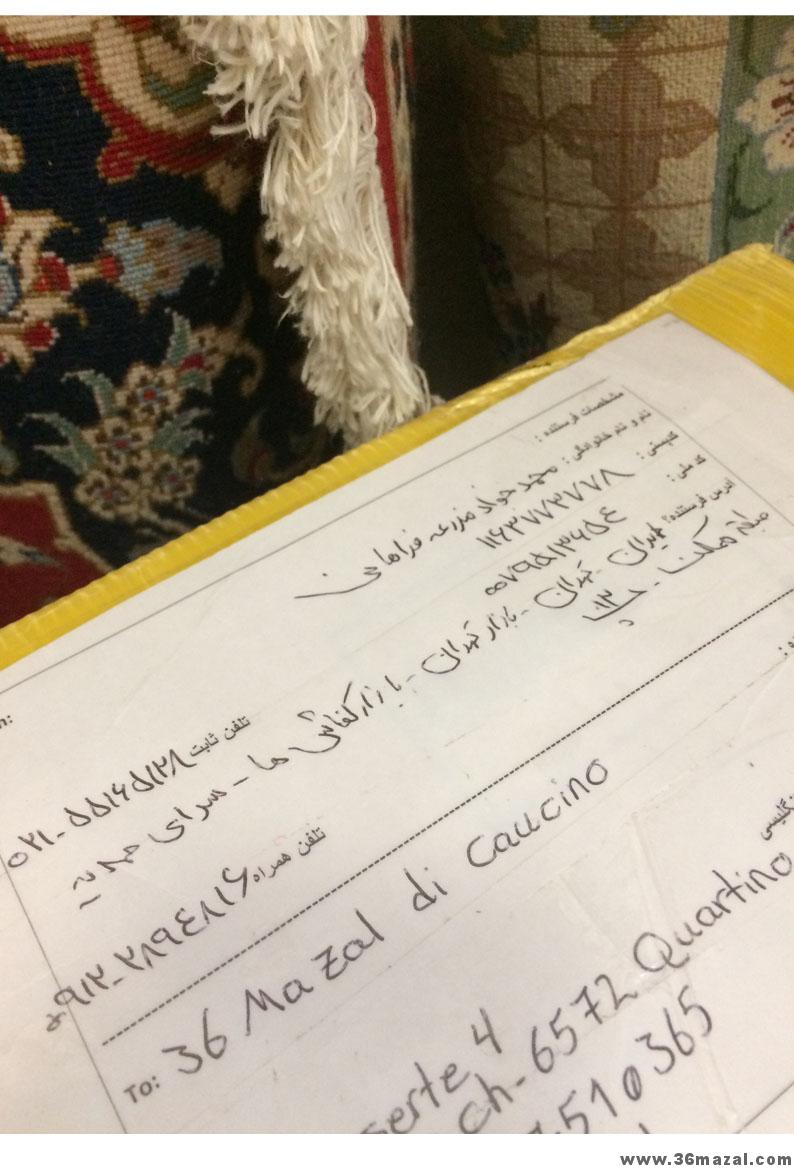 مشخصات فرستنده :
نام و نام خانوادگی : محمد جواد مزرعه فراهانی
کدپستی : ۱۱۶۳۷۷۳۷۷۸
کد ملی : ۰۰۷۹۵۱۳۶۵۴
آدرس فرستنده : ایران - تهران - بازار تهران - بازار کفاش ها - سرای
پ ۱۳
تلفن ثابت ۰۲۱-۵۵۱۶۵۱۲۸
تلفن همراه ۰۹۱۲-۲۸۹۴۸۱۶
To: 36 Mazal di Caucino
serte 4
ch-6572 Quartino
510365
www.36mazal.com